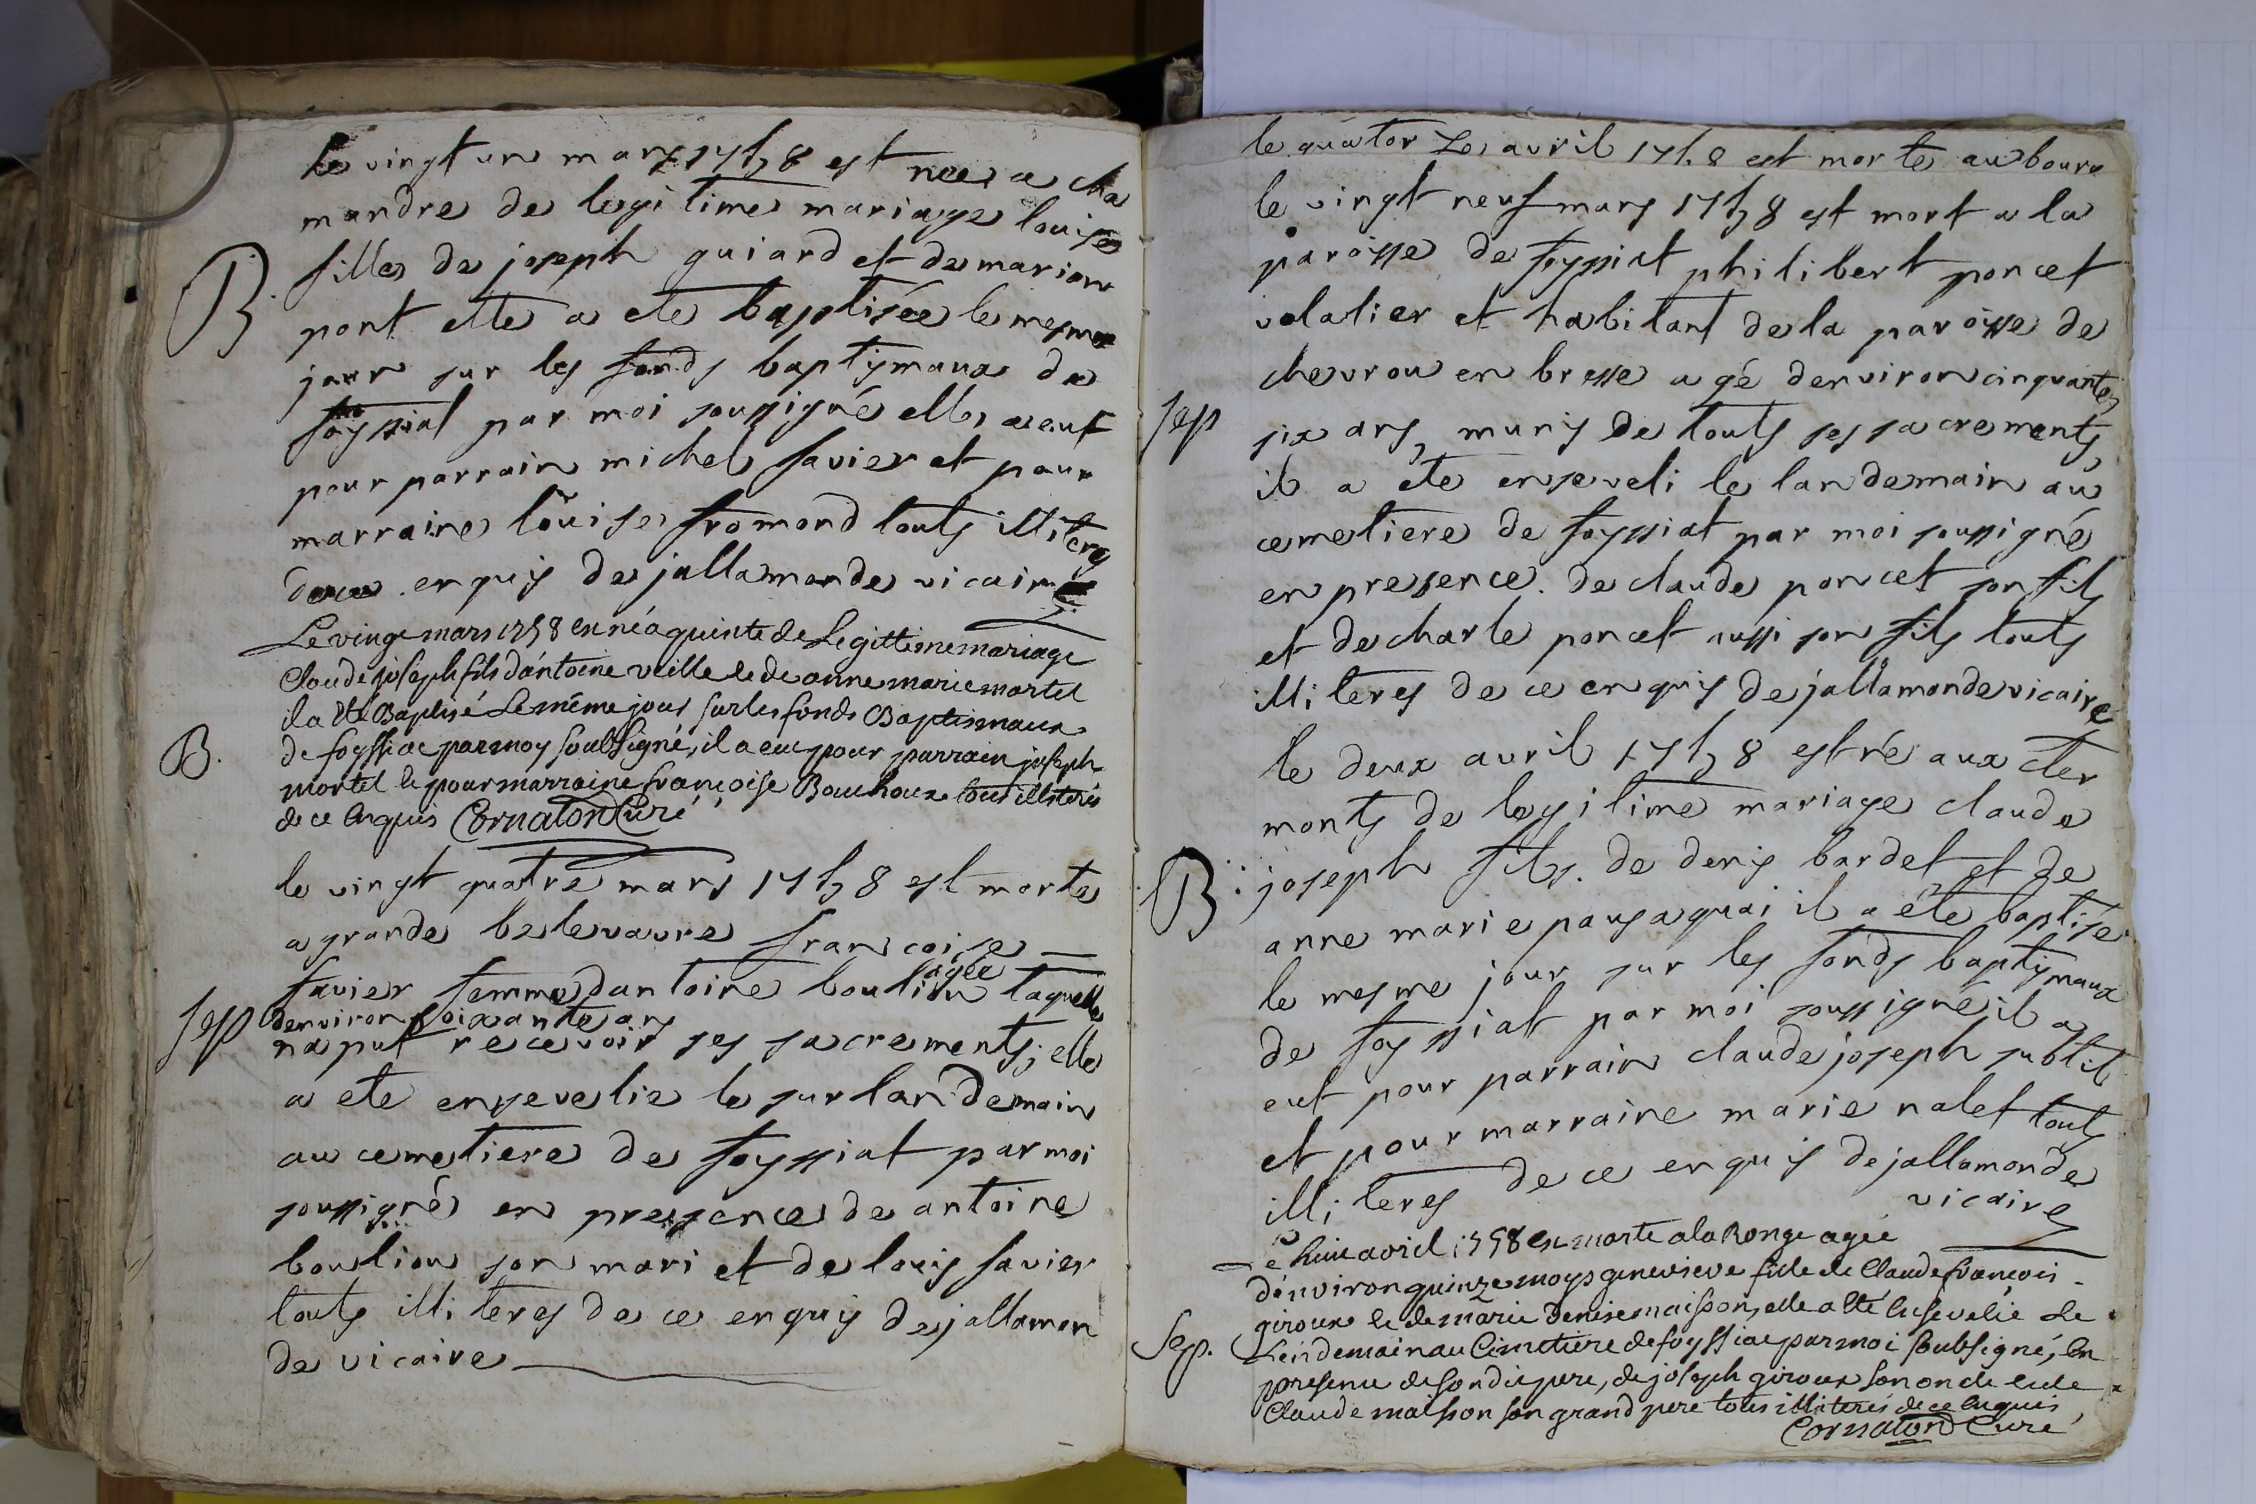 le vingt un mars 1758 est nee a cha
mandre de legitime mariage louise
fille de joseph guiard et de marion
B.
pont elle a ete baptisée le mesme
jour sur les fonds baptismaux de
foyssiat par moi soussigné elle a eut
pour parrain michel favier et pour
marraine loüise fromond touts illiteres
de ce enquis de jallamonde vicaire
Le vingt mars 1758 est né a quinte de Legittime mariage
Claude joseph fils d'antoine veille et de anne marie martel
il a été Baptisé Le même jour sur les fonds Baptismaux
B.
de foyssiat par moy soubsigné, il a eut pour parrain joseph
mortel et pour marraine françoise Bouchoux tous illiterés
de ce Enquis Cornaton Curé
le vingt quatre mars 1758 est morte
a grande belevavre francoise
favier femme dantoine boulion agée laquelle
Sep
denviron soixante ans
na put recevoir ses sacrements; elle
a ete ensevelie le surlandemain
au cemetiere de foyssiat par moi
soussigné en presence de antoine
boulion son mari et de louis favier
touts illiteres de ce enquis de jallamon
de vicaire
le quatorze avril 1758 est morte au bourg
le vingt neuf mars 1758 est mort a la
paroisse de foyssiat philibert poncet
volatier et habitant de la paroisse de
chevrou en bresse agé denviron cinquante
Sep
six ans, munis de touts ses sacrements,
il a éte enseveli le landemain au
cemetiere de foyssiat par moi soussigné
en presence. de claude poncet son fils
et de charle poncet aussi son fils touts
illiteres de ce enquis de jallamonde vicaire
le deux avril 1758 est né aux cler
monts de legitime mariage claude
B
joseph fils. de denis bardet et de
anne marie pausaquai il a éte baptisé
le mesme jour sur les fonds baptismaux
de foyssiat par moi soussigné il a
eut pour parrain claude joseph subtil
et pour marraine marie nalet touts
illiteres de ce enquis de jallamonde
vicaire
Le huit avril 1758 est morte a la Ronge agée
d'environ quinze moys genevieve fille de Claude françois
giroux et de marie Denise maisson, elle a été Ensevelie Le
Sep.
Lendemain au Cimetiere de foyssiat par moi soubsigné, En
presence de son dit pere, de joseph giroux son oncle et de
Claude maisson son grand pere tous illiterés de ce Enquis
Cornaton Curé